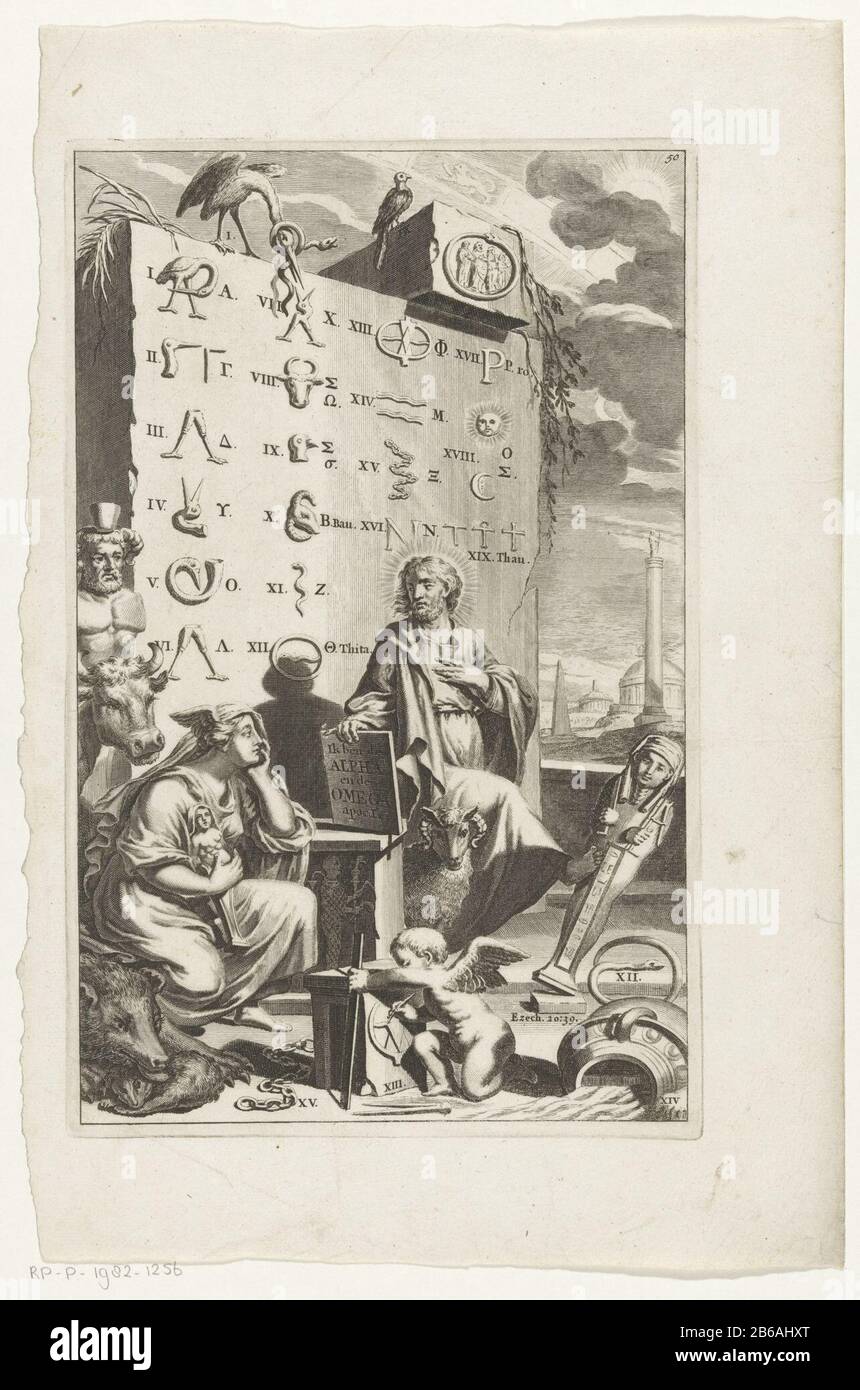 50
I.
I. A. VII. X. XIII. Φ. XVII. P. ro
II. Γ. VIII. Σ Ω. XIV. M.
III. Δ. IX. Σ σ. XV. Ξ. XVIII. O Σ.
IV. Υ. X. B. Bau. XVI. N. XIX. Thau.
V. O. XI. Z.
VI. Λ. XII. Θ. Thita.
Ik ben de
ALPHA
en de
OMEGA
apoc. I.
XII.
Ezech. 20:39.
XIII.
XV.
XIV
RP-P-1982-1256
alamy
Image ID: 2B6AHXT
www.alamy.com